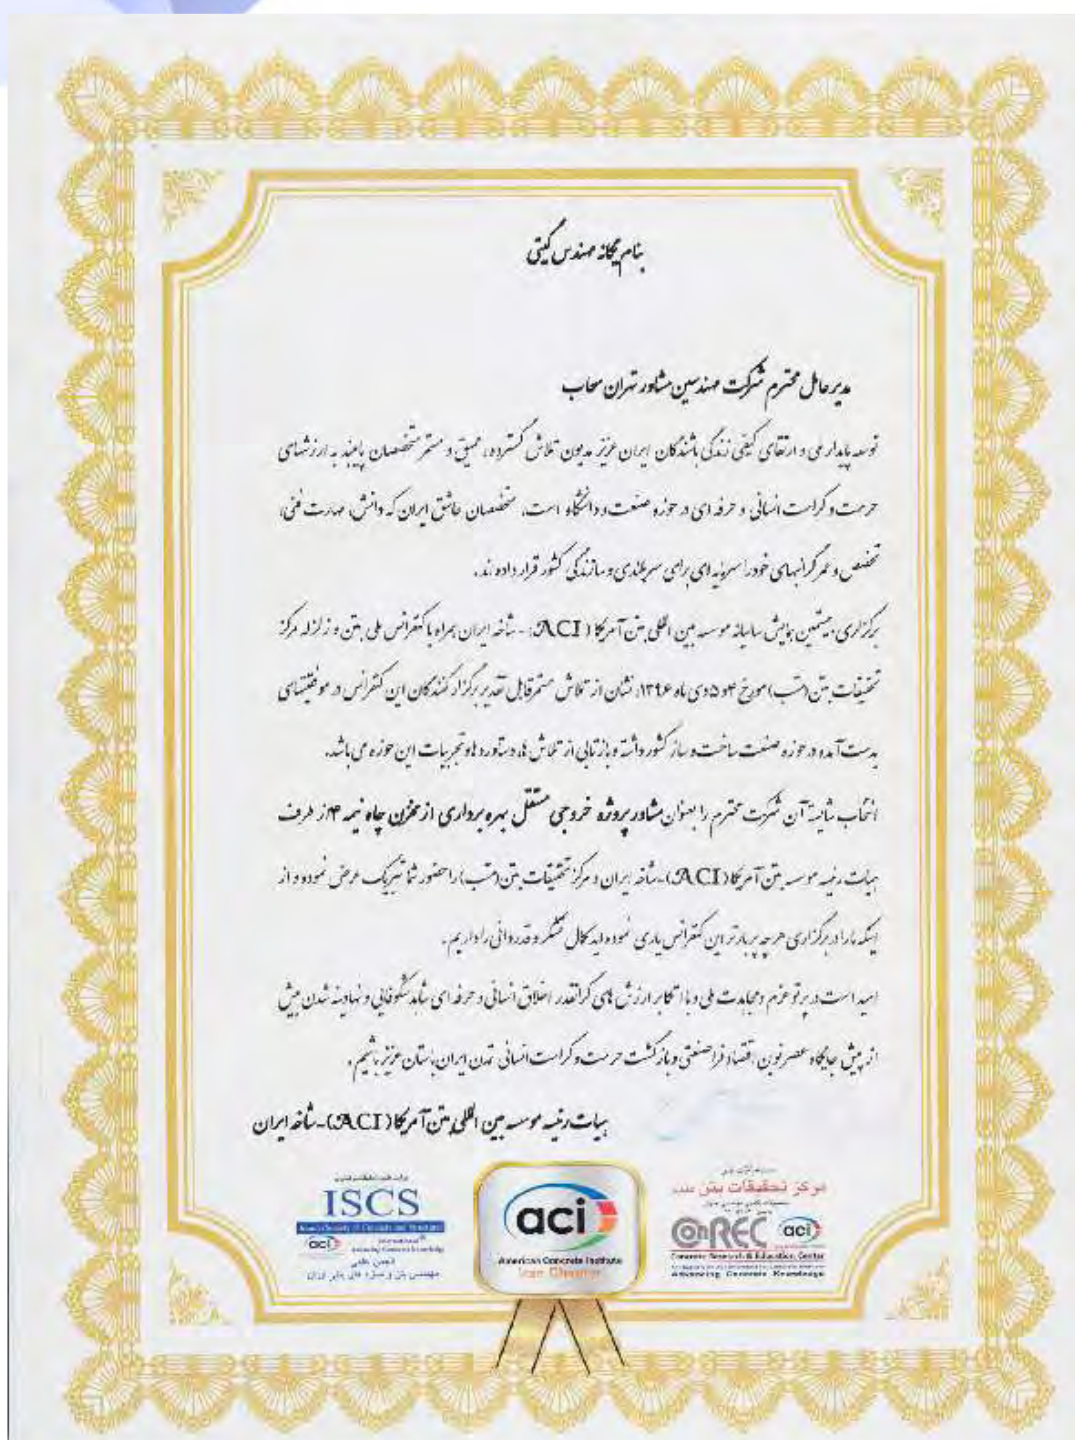 بنام یگانه مهندس گیتی
مدیرعامل محترم شرکت مهندسین مشاور تهران سحاب
توسعه پایدار ملی و ارتقای کیفی زندگی باشندگان ایران عزیز مدیون تلاش گسترده، عمیق و مستمر متخصصان پایبند به ارزشهای
حرمت و کرامت انسانی و حرفه ای در حوزه صنعت و دانشگاه است، متخصصان عاشق ایران که دانش، مهارت فنی،
تخصص و عمر گرانبهای خود را سرمایه ای برای سربلندی و سازندگی کشور قرار داده اند.
برگزاری بیستمین همایش سالیانه موسسه بین المللی بتن آمریکا (ACI) - شاخه ایران بهمراه با کنفرانس ملی بتن و زلزله مرکز
تحقیقات بتن (متب) مورخ ۴و ۵ دی ماه ۱۳۹۶، نشان از تلاش مستمر قابل تقدیر برگزار کنندگان این کنفرانس در موفقیتهای
بدست آمده در حوزه صنعت ساخت و ساز کشور داشته و بازتابی از تلاش ها، دستاوردها و تجربیات این حوزه می باشد.
انتخاب شایسته آن شرکت محترم را بعنوان مشاور پروژه خروجی مستقل بهره برداری از مخزن چاه نیمه ۴ از طرف
هیات رئیسه موسسه بتن آمریکا (ACI) - شاخه ایران و مرکز تحقیقات بتن (متب) را حضور شما تبریک عرض نموده و از
اینکه ما را در برگزاری هرچه پربارتر این کنفرانس یاری نموده اید کمال تشکر و قدردانی را داریم.
امید است در پرتو عزم و مجاهدت ملی و با اتکا بر ارزش های گرانقدر اخلاق انسانی و حرفه ای شاهد شکوفائی و نهادینه شدن بیش
از پیش جایگاه عصر نوین، اقتصاد فراصنعتی و بازگشت حرمت و کرامت انسانی تمدن ایران باستان عزیز باشیم.
هیات رئیسه موسسه بین المللی بتن آمریکا (ACI) - شاخه ایران
ISCS
Iranian Society of Concrete and Structures
aci
Advancing Concrete Knowledge
انجمن علمی
مهندسی بتن و سازه های بتنی ایران
aci
American Concrete Institute
Iran Chapter
مرکز تحقیقات بتن
ConREC aci
Concrete Research & Education Center
Advancing Concrete Knowledge